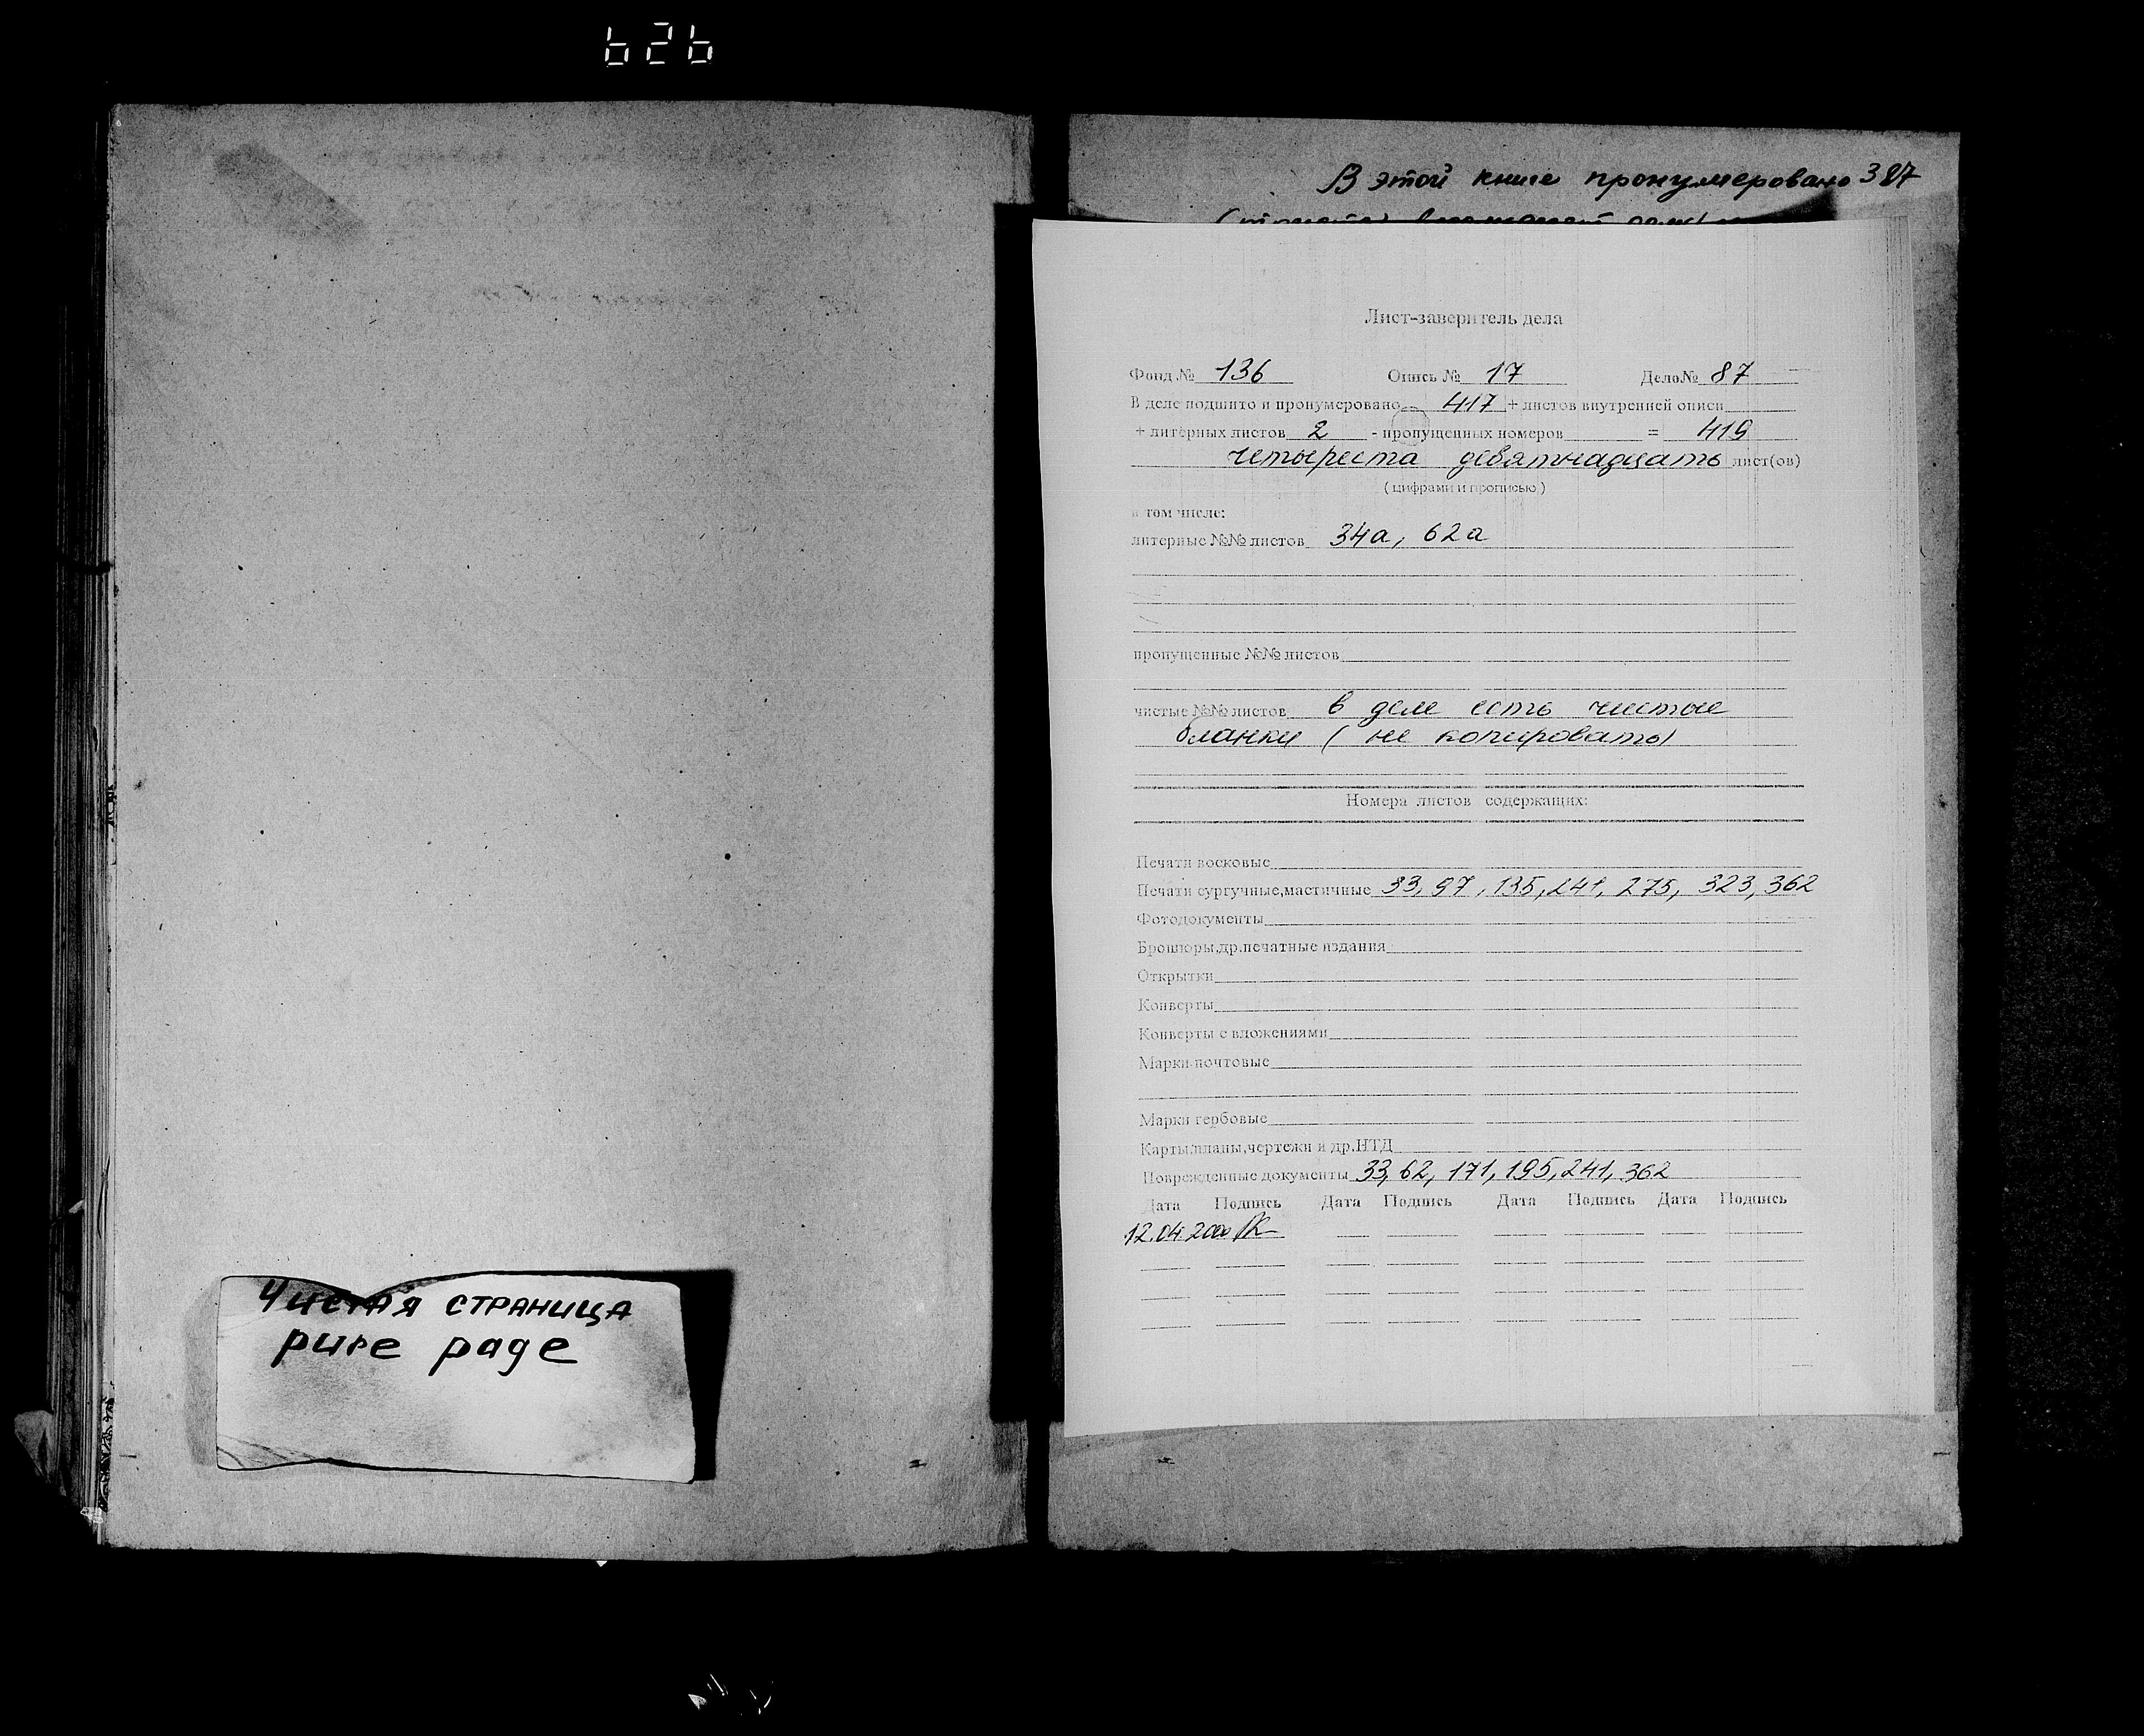 626
Чистая страница
pure page
В этой книге пронумеровано 387
Лист-заверитель дела
Фонд № 136 Опись № 17 Дело№ 87
В деле подшито и пронумеровано 417 + листов внутренней описи
+ литерных листов 2 - пропущенных номеров = 419
четыреста девятнадцать лист(ов)
(цифрами и прописью)
в том числе:
литерные №№ листов 34а, 62а
пропущенные №№ листов
чистые №№ листов в деле есть чистые
бланки (не копировать)
Номера листов содержащих:
Печати восковые
Печати сургучные,мастичные 33, 97, 135, 241, 275, 323, 362
Фотодокументы
Брошюры,др.печатные издания
Открытки
Конверты
Конверты с вложениями
Марки почтовые
Марки гербовые
Карты,планы,чертежи и др.НТД
Поврежденные документы 33, 62, 171, 195, 241, 362
Дата Подпись Дата Подпись Дата Подпись Дата Подпись
12.04.2000